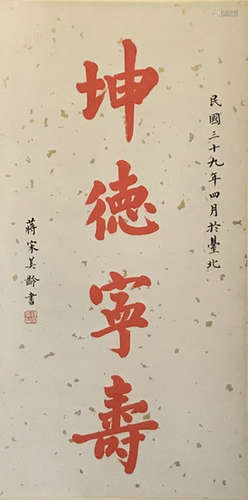 民國三十九年四月於臺北
坤德寧壽
蔣宋美齡書